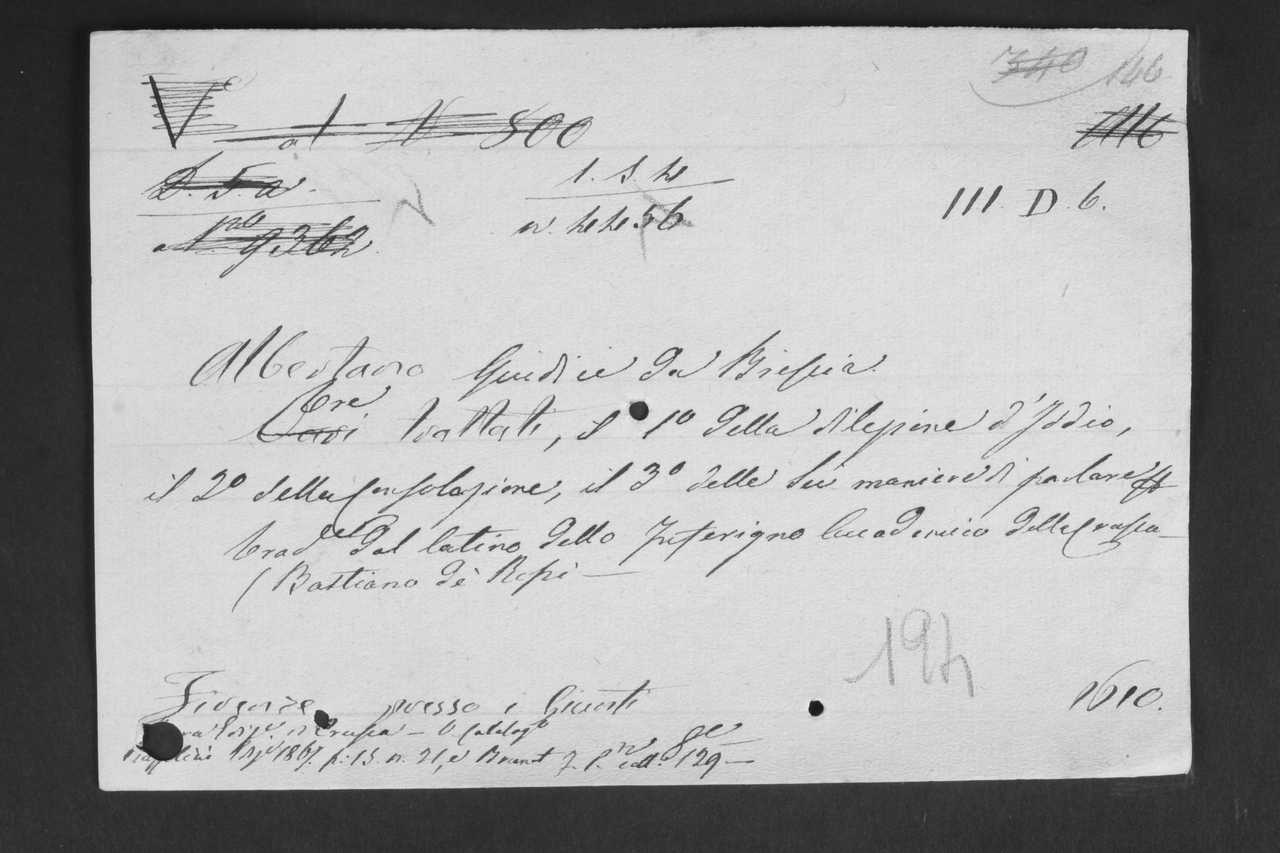 340 146
V
al N 800
1116
D. 5. a.
1. S. 4
III D 6.
n. 4456
9362
Albertano Giudice da Brescia
Tre
trattati, il 1º della dilezione d'Iddio,
il 2º della Consolazione, il 3º delle sei maniere di parlare
trad.e dal latino dello Inferigno Accademico della Crusca
(Bastiano de' Rossi —
194
Firenze presso i Giunti
1610.
Crusca —
1867. p. 15. n. 21, e Brunet 129 —